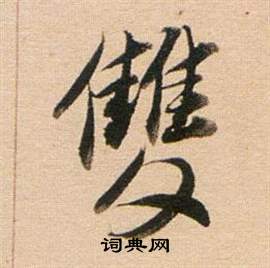 雙
词典网